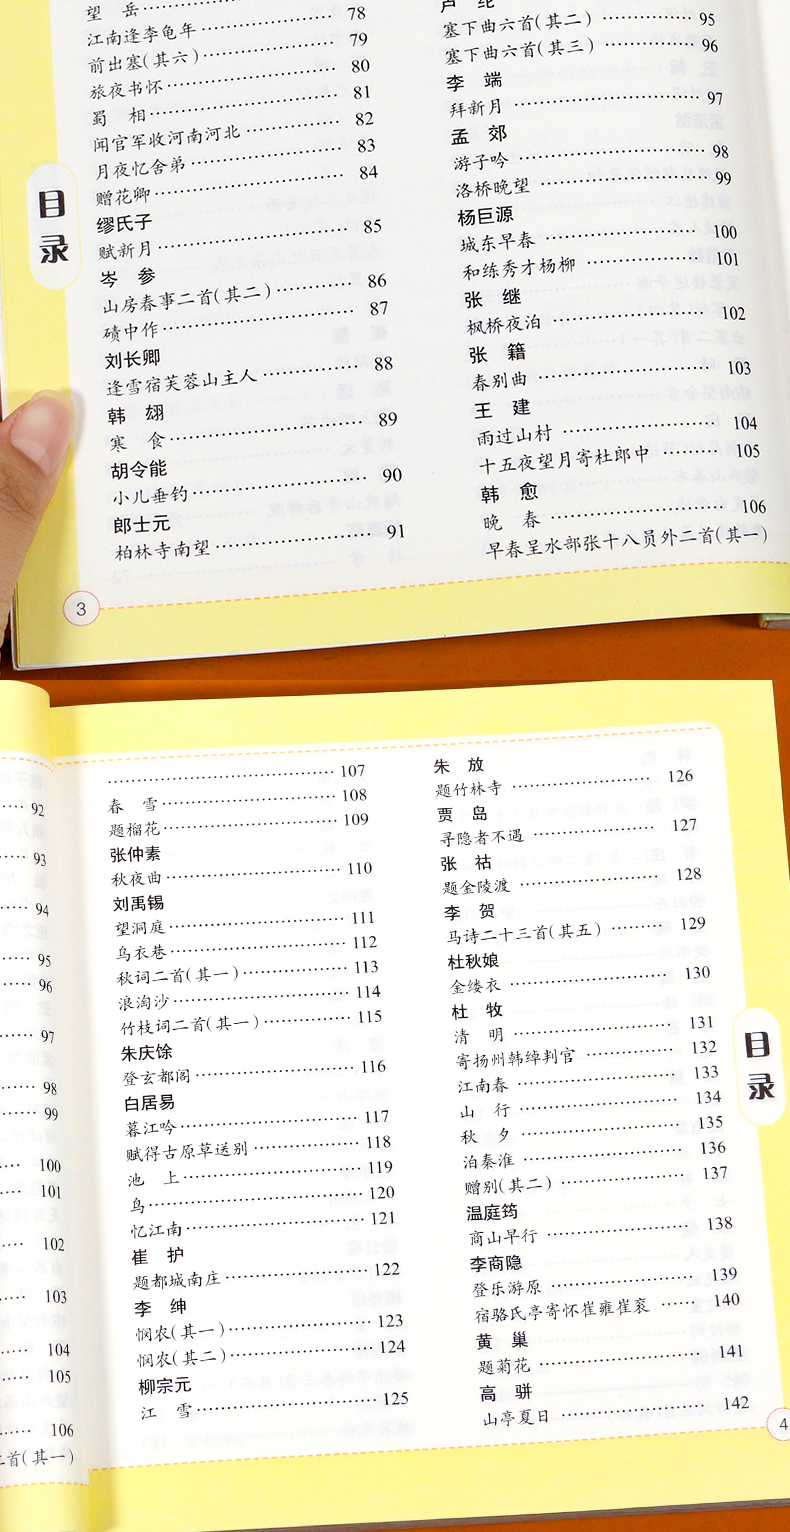 望 岳 78
江南逢李龟年 79
前出塞(其六) 80
旅夜书怀 81
蜀 相 82
闻官军收河南河北 83
月夜忆舍弟 84
赠花卿
缪氏子
赋新月 85
岑 参
山房春事二首(其二) 86
碛中作 87
刘长卿
逢雪宿芙蓉山主人 88
韩 翃
寒 食 89
胡令能
小儿垂钓 90
郎士元
柏林寺南望 91
卢 纶
塞下曲六首(其二) 95
塞下曲六首(其三) 96
李 端
拜新月 97
孟 郊
游子吟 98
洛桥晚望 99
杨巨源
城东早春 100
和练秀才杨柳 101
张 继
枫桥夜泊 102
张 籍
春别曲 103
王 建
雨过山村 104
十五夜望月寄杜郎中 105
韩 愈
晚 春 106
早春呈水部张十八员外二首(其一)
目录
3
92
93
94
95
96
97
98
99
100
101
102
103
104
105
106
二首(其一)
107
春 雪 108
题榴花 109
张仲素
秋夜曲 110
刘禹锡
望洞庭 111
乌衣巷 112
秋词二首(其一) 113
浪淘沙 114
竹枝词二首(其一) 115
朱庆馀
登玄都阁 116
白居易
暮江吟 117
赋得古原草送别 118
池 上 119
鸟 120
忆江南 121
崔 护
题都城南庄 122
李 绅
悯农(其一) 123
悯农(其二) 124
柳宗元
江 雪 125
朱 放
题竹林寺 126
贾 岛
寻隐者不遇 127
张 祜
题金陵渡 128
李 贺
马诗二十三首(其五) 129
杜秋娘
金缕衣 130
杜 牧
清 明 131
寄扬州韩绰判官 132
江南春 133
山 行 134
秋 夕 135
泊秦淮 136
赠别(其二) 137
温庭筠
商山早行 138
李商隐
登乐游原 139
宿骆氏亭寄怀崔雍崔衮 140
黄 巢
题菊花 141
高 骈
山亭夏日 142
目录
4